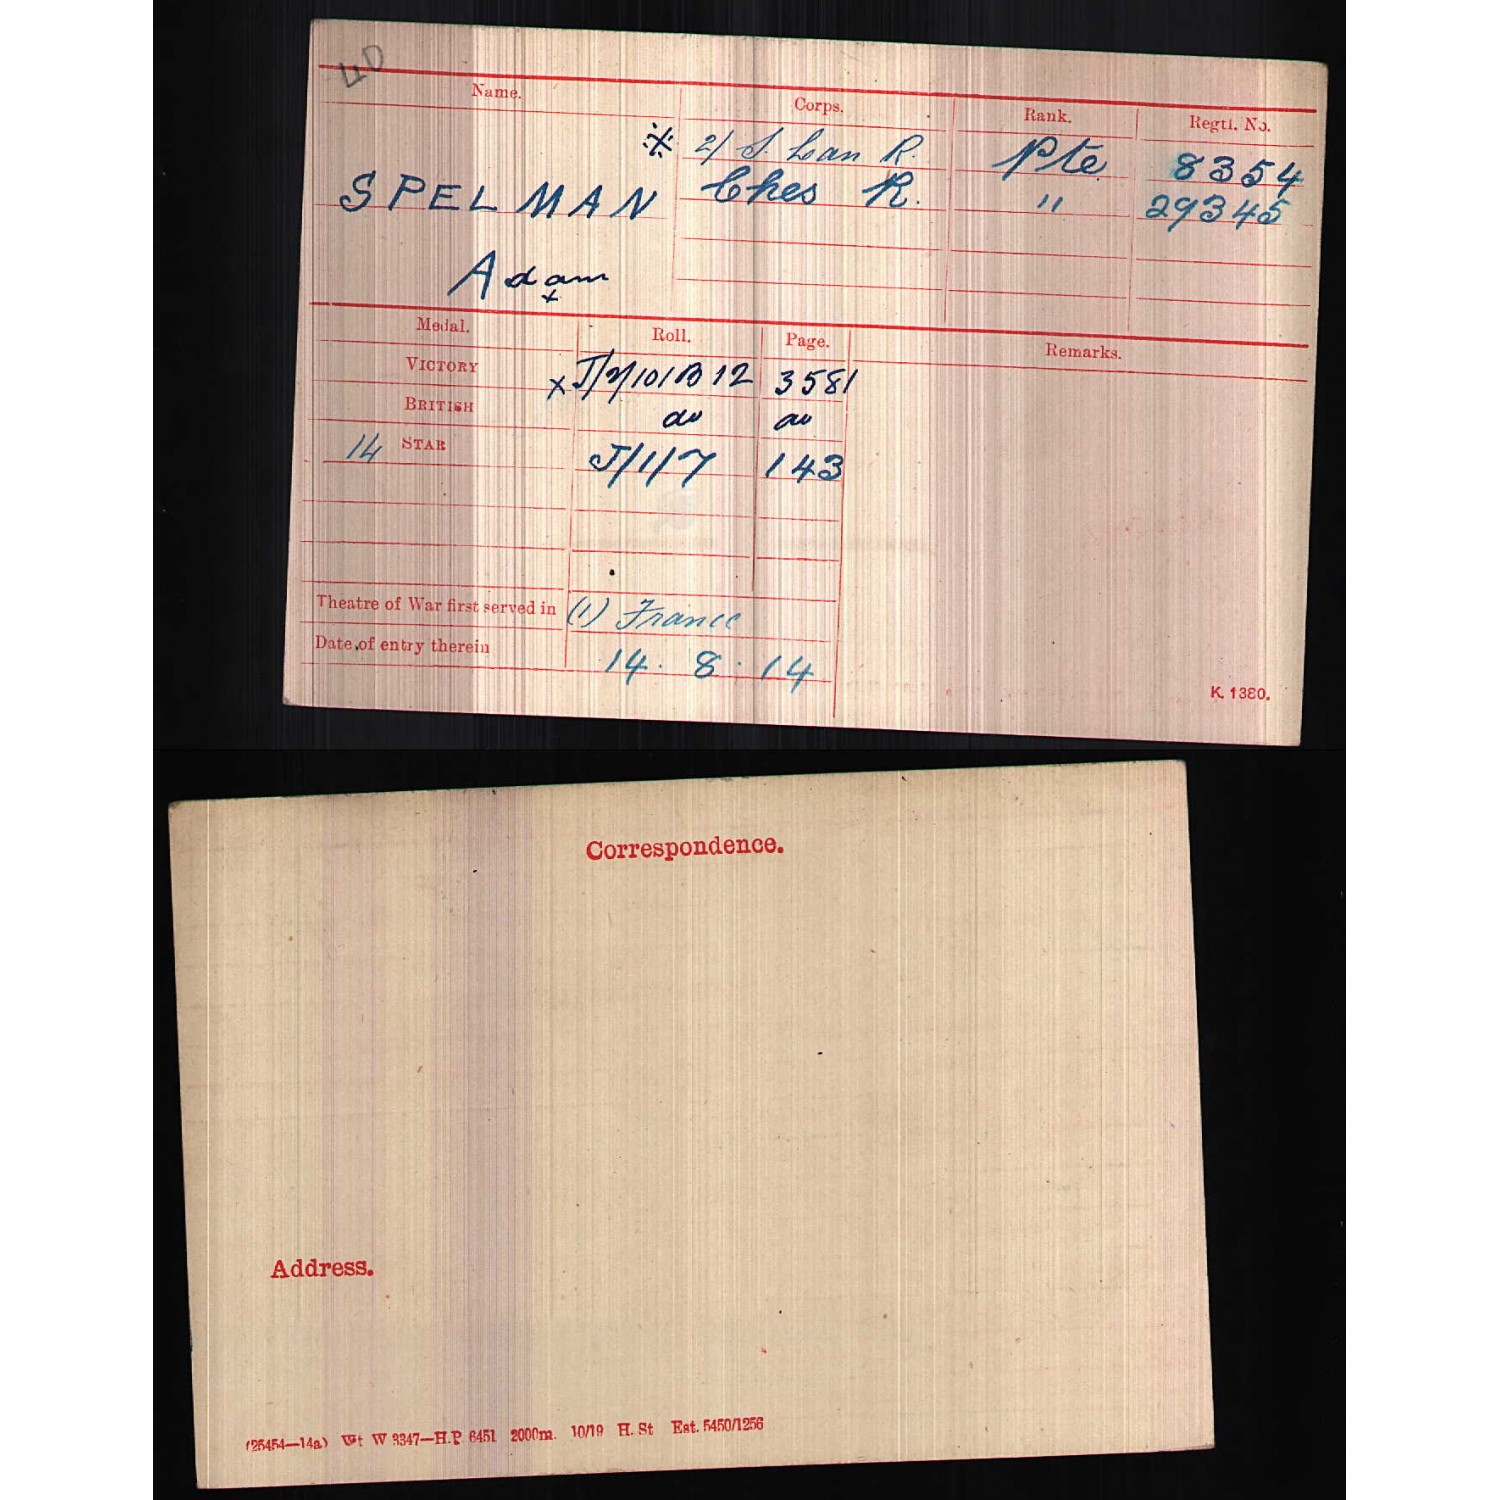 40
Name. Corps. Rank. Regtl. No.
※ 2/ S. Lan R. Pte 8354
SPELMAN Ches R. " 29345
Adam
x
Medal. Roll. Page. Remarks.
VICTORY x J/2/101B12 3581
BRITISH do do
14 STAR J/1/7 143
Theatre of War first served in (1) France
Date of entry therein 14. 8. 14
K. 1380.
Correspondence.
Address.
(25454—14a) Wt W 3347—H.P. 6451 2000m. 10/19 H. St Est. 5450/1256